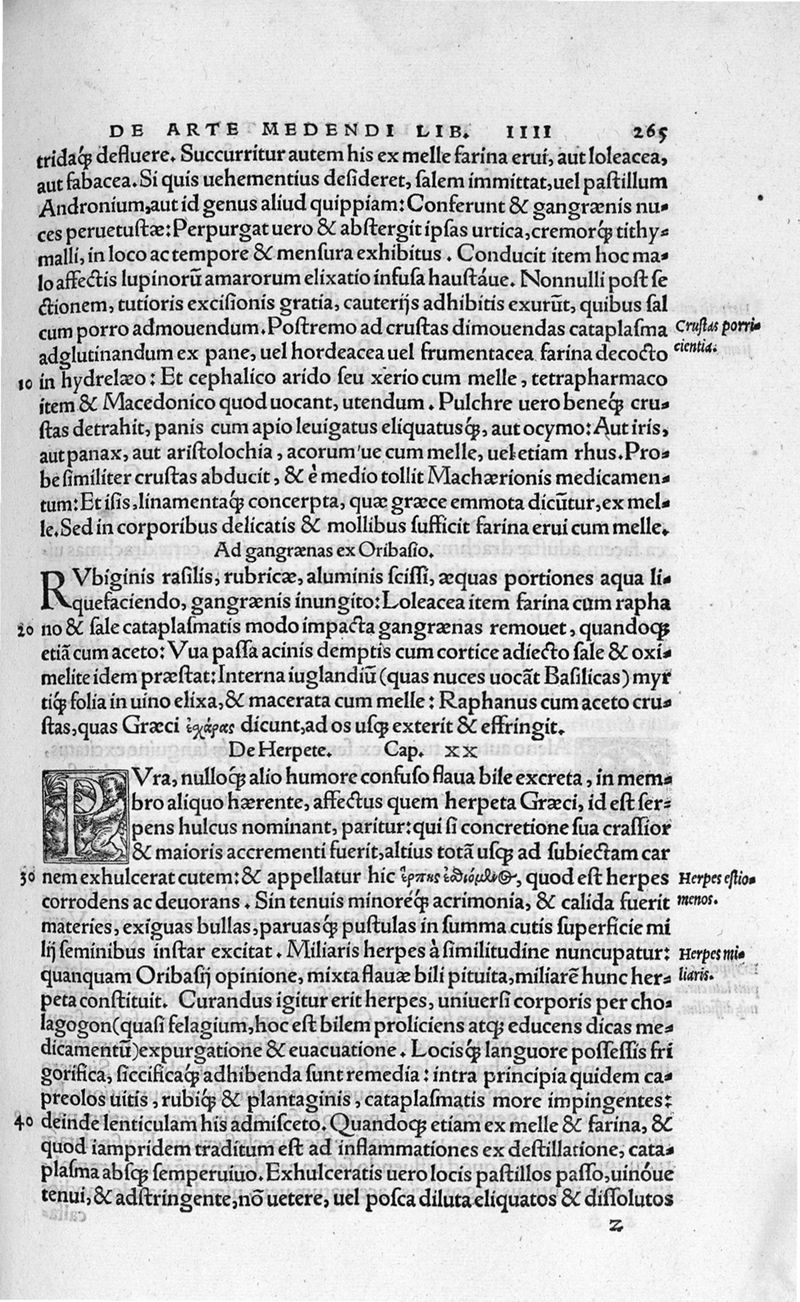 DE ARTE MEDENDI LIB. IIII 265
tridaq́ꝫ defluere. Succurritur autem his ex melle farina erui, aut loleacea,
aut fabacea. Si quis uehementius desideret, salem immittat, uel pastillum
Andronium, aut id genus aliud quippiam: Conferunt & gangrænis nu-
ces peruetustæ: Perpurgat uero & abstergit ipsas urtica, cremorq́ꝫ tithy-
malli, in loco ac tempore & mensura exhibitus. Conducit item hoc ma-
lo affectis lupinorũ amarorum elixatio infusa haustáue. Nonnulli post se
ctionem, tutioris excisionis gratia, cauterijs adhibitis exurũt, quibus sal
cum porro admouendum. Postremo ad crustas dimouendas cataplasma
Crustas porri-
adglutinandum ex pane, uel hordeacea uel frumentacea farina decocto
cientia.
10 in hydrelæo: Et cephalico arido seu xerio cum melle, tetrapharmaco
item & Macedonico quod uocant, utendum. Pulchre uero beneq́ꝫ cru-
stas detrahit, panis cum apio leuigatus eliquatusq́ꝫ, aut ocymo: Aut iris,
aut panax, aut aristolochia, acorum'ue cum melle, uel etiam rhus. Pro-
be similiter crustas abducit, & è medio tollit Machærionis medicamen-
tum: Et isis, linamentaq́ꝫ concerpta, quæ græce emmota dicũtur, ex mel-
le. Sed in corporibus delicatis & mollibus sufficit farina erui cum melle.
Ad gangrænas ex Oribasio.
RVbiginis rasilis, rubricæ, aluminis scissi, æquas portiones aqua li-
quefaciendo, gangrænis inungito: Loleacea item farina cum rapha
20 no & sale cataplasmatis modo impacta gangrænas remouet, quandoq́ꝫ
etiã cum aceto: Vua passa acinis demptis cum cortice adiecto sale & oxi-
melite idem præstat: Interna iuglandiũ (quas nuces uocãt Basilicas) myr
tiq́ꝫ folia in uino elixa, & macerata cum melle: Raphanus cum aceto cru-
stas, quas Græci ἐσχάρας dicunt, ad os usq́ꝫ exterit & effringit.
De Herpete. Cap. XX
PVra, nulloq́ꝫ alio humore confuso flaua bile excreta, in mem-
bro aliquo hærente, affectus quem herpeta Græci, id est ser-
pens hulcus nominant, paritur: qui si concretione sua crassior
& maioris accrementi fuerit, altius totã usq́ꝫ ad subiectam car
30 nem exhulcerat cutem: & appellatur hic ἕρπης ἐσθιόμενος, quod est herpes
Herpes estio-
corrodens ac deuorans. Sin tenuis minoréq́ꝫ acrimonia, & calida fuerit
menos.
materies, exiguas bullas, paruasq́ꝫ pustulas in summa cutis superficie mi
lij seminibus instar excitat. Miliaris herpes à similitudine nuncupatur:
Herpes mi-
quanquam Oribasij opinione, mixta flauæ bili pituita, miliarẽ hunc her-
liaris.
peta constituit. Curandus igitur erit herpes, uniuersi corporis per cho-
lagogon (quasi felagium, hoc est bilem proliciens atq́ꝫ educens dicas me-
dicamentũ) expurgatione & euacuatione. Locisq́ꝫ languore possessis fri
gorifica, siccificaq́ꝫ adhibenda sunt remedia: intra principia quidem ca-
preolos uitis, rubiq́ꝫ & plantaginis, cataplasmatis more impingentes:
40 deinde lenticulam his admisceto. Quandoq́ꝫ etiam ex melle & farina, &
quod iampridem traditum est ad inflammationes ex destillatione, cata-
plasma absq́ꝫ semperuiuo. Exhulceratis uero locis pastillos passo, uinóue
tenui, & adstringente, nõ uetere, uel posca diluta eliquatos & dissolutos
Z